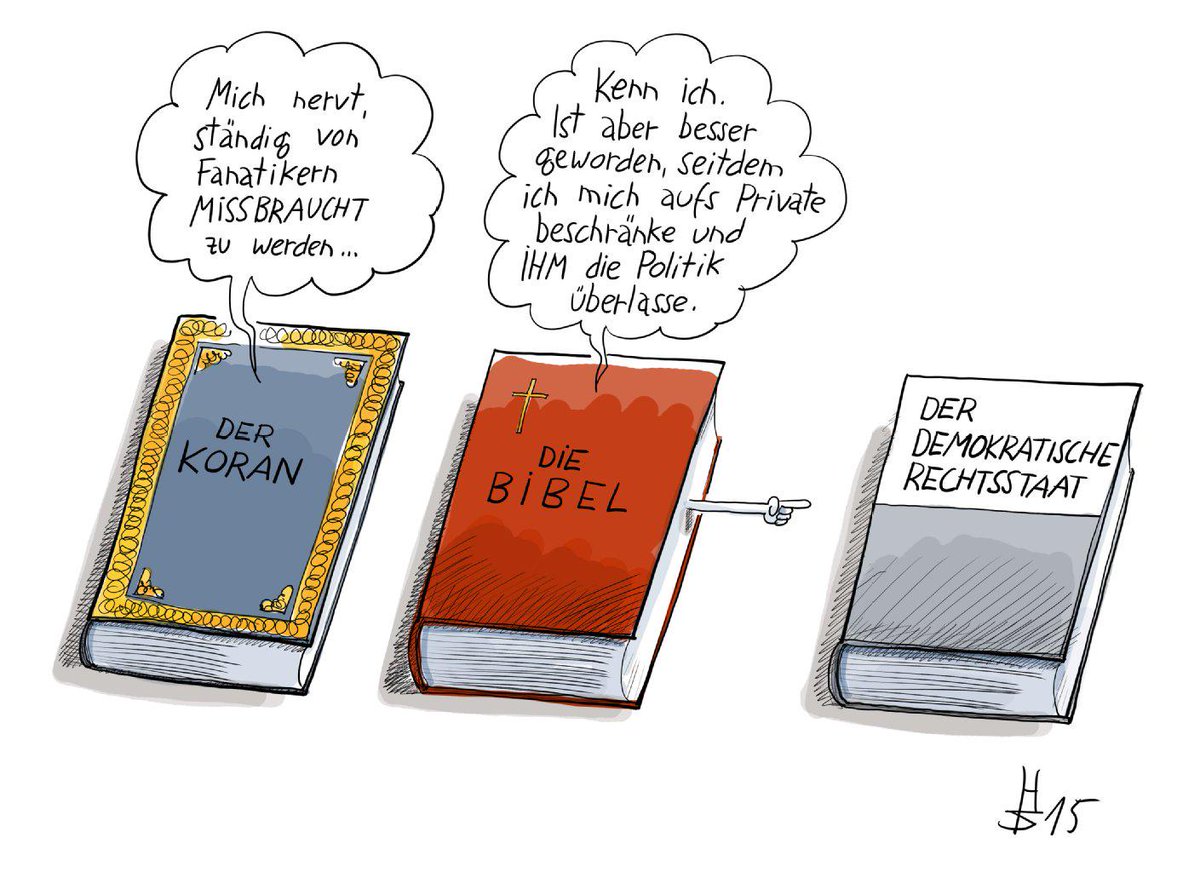 Mich nervt,
ständig von
Fanatikern
MISSBRAUCHT
zu werden...
Kenn ich.
Ist aber besser
geworden, seitdem
ich mich aufs Private
beschränke und
IHM die Politik
überlasse.
DER
KORAN
DIE
BIBEL
DER
DEMOKRATISCHE
RECHTSSTAAT
15